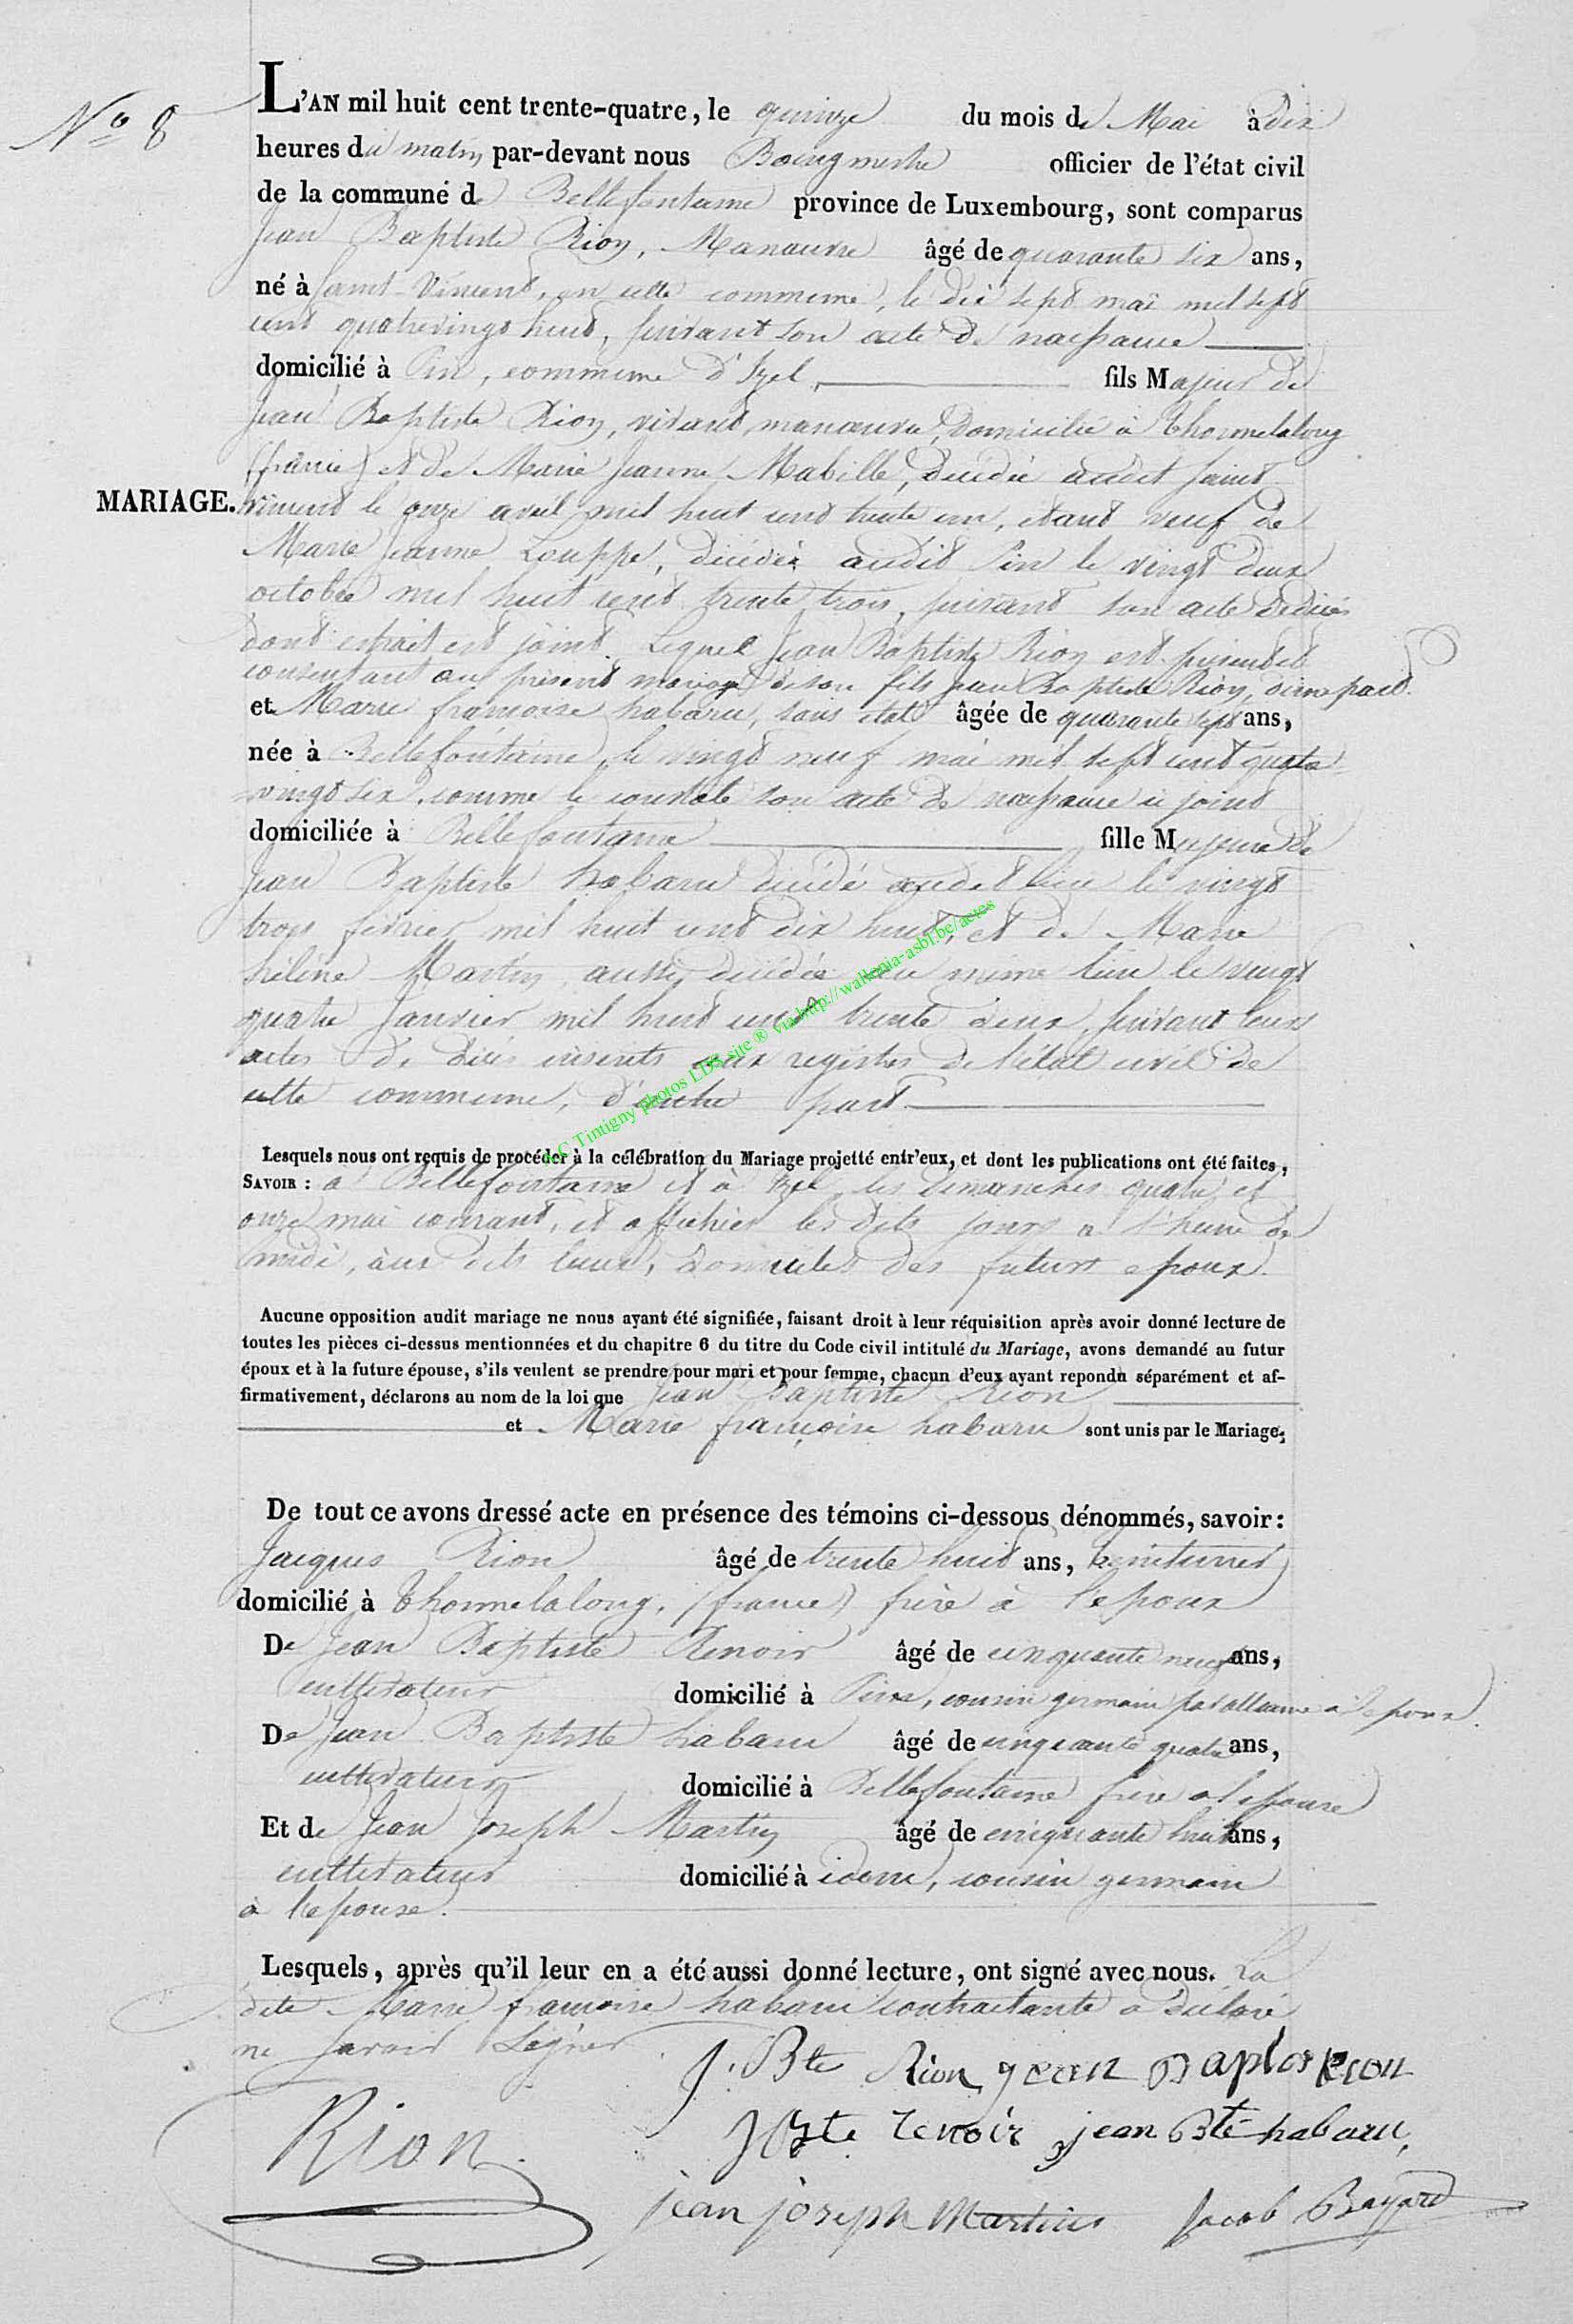 N° 8
L'AN mil huit cent trente-quatre, le quinze du mois de Mai à dix
heures du matin, par-devant nous Bourgmestre officier de l'état civil
de la commune de Bellefontaine province de Luxembourg, sont comparus
Jean Baptiste Rion, Manœuvre âgé de quarante six ans,
né à Saint-Vincent, en cette commune, le dix sept mai mil sept
cent quatrevingt huit, suivant son acte de naissance
domicilié à Pin, commune d'Izel, fils Majeur de
Jean Baptiste Rion, vivant, manœuvre, domicilié à Thonnelalong
(france) et de Marie Jeanne Mabille, décédée audit saint
MARIAGE. Vincent le onze avril mil huit cent trente un, étant veuf de
Marie Jeanne Louppe, décédée audit Pin le vingt deux
octobre mil huit cent trente trois, suivant son acte de décès
dont extrait est joint. Lequel Jean Baptiste Rion est présent et
consentant au présent mariage de son fils Jean Baptiste Rion, d'une part.
et Marie françoise habaru, sans état âgée de quarante sept ans,
née à Bellefontaine, le vingt neuf mai mil sept cent quatre
vingt six, comme le constate son acte de naissance ci joint
domiciliée à Bellefontaine fille Majeure de
Jean Baptiste habaru décédé audit lieu le vingt
trois février mil huit cent dix huit, et de Marie
héline Martin, aussi décédée au même lieu le vingt
quatre Janvier mil huit cent trente deux, suivant leurs
actes de décès inscrits aux registres de l'état civil de
cette commune, d'autre part.
A.C Tintigny photos LDS site ® via http://wallonia-asbl.be/actes
Lesquels nous ont requis de procéder à la célébration du Mariage projetté entr'eux, et dont les publications ont été faites,
SAVOIR : à Bellefontaine et à Izel les dimanches quatre et
onze mai courant, et affichées les dits jours à l'heure de
midi, aux dits lieux, domiciles des futurs epoux.
Aucune opposition audit mariage ne nous ayant été signifiée, faisant droit à leur réquisition après avoir donné lecture de
toutes les pièces ci-dessus mentionnées et du chapitre 6 du titre du Code civil intitulé du Mariage, avons demandé au futur
époux et à la future épouse, s'ils veulent se prendre pour mari et pour femme, chacun d'eux ayant repondu séparément et af-
firmativement, déclarons au nom de la loi que Jean Baptiste Rion
et Marie françoise habaru sont unis par le Mariage;
De tout ce avons dressé acte en présence des témoins ci-dessous dénommés, savoir :
Jacques Rion âgé de trente huit ans,
domicilié à Thonnelalong, (france) frère à l'epoux
De Jean Baptiste Renoir âgé de cinquante neuf ans,
cultivateur domicilié à Pin, cousin germain par alliance à l'epoux.
De Jean Baptiste habaru âgé de cinquante quatre ans,
cultivateur domicilié à Bellefontaine frère a l'epouse
Et de Jean Joseph Martin âgé de cinquante huit ans,
cultivateur domicilié à idem, cousin germain
à l'epouse.
Lesquels, après qu'il leur en a été aussi donné lecture, ont signé avec nous. La
dite Marie françoise habaru contractante a déclaré
ne savoir Signer
J. Bte Rion jean Baptes Rion
Rion JBte renoir jean Bte habaru,
jean joseph Martin Jacob Bayard